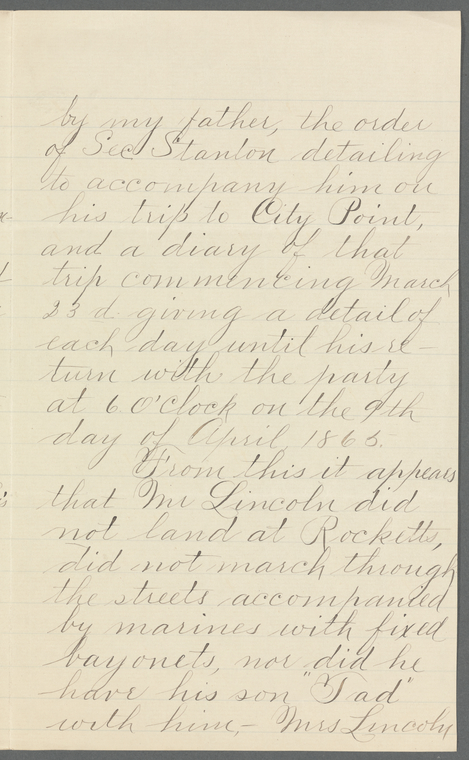 by my father, the order
of Sec Stanton detailing
to accompany him on
his trip to City Point,
and a diary of that
trip commencing March
23 d. giving a detail of
each day until his re-
turn with the party
at 6 O'Clock on the 9th
day of April 1865.
From this it appears
that Mr Lincoln did
not land at Rocketts,
did not march through
the streets accompanied
by marines with fixed
bayonets, nor did he
have his son "Tad"
with him,- Mrs Lincoln